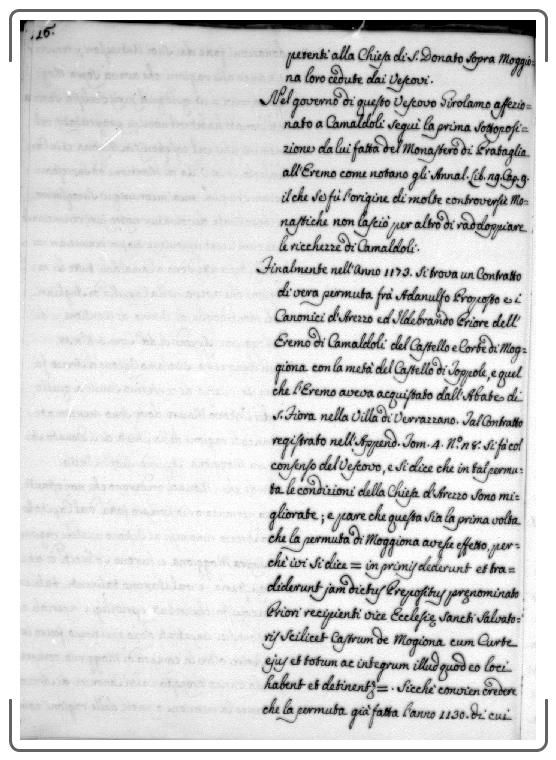 .16.
petenti alla Chiesa di S. Donato sopra Moggio=
na loro cedute dai Vescovi.
Nel governo di questo Vescovo Girolamo affezio=
nato a Camaldoli Seguì la prima Sottoposi=
zione da lui fatta del Monastero di Prataglia
all'Eremo come notano gli Annal. Lib. ng. Cap. 9.
il che Se fù l'origine di molte controversie Mo=
nastiche non lasciò per altro di raddoppiare
le ricchezze di Camaldoli.
Finalmente nell'Anno 1173. Si trova un Contratto
di vera permuta frà Adanulfo Proposto e i
Canonici d'Arezzo ed Ildebrando Priore dell'
Eremo di Camaldoli del Castello e Corte di Mog=
giona con la metà del Castello di Toppole, e quel
che l'Eremo aveva acquistato dall'Abate di
S. Fiora nella Villa di Verrazzano. Tal Contratto
registrato nell'Append. Tom. 4. N.º n8. Si fà col
consenso del Vescovo, e Si dice che in tal permu=
ta le condizioni della Chiesa d'Arezzo Sono mi=
gliorate; e pare che questa Sia la prima volta
che la permuta di Moggiona avesse effetto, per=
chè ivi Si dice = in primis dederunt et tra=
diderunt jam dictus Prepositus prenominato
Priori recipienti vice Ecclesię Sancti Salvato=
ris Scilicet Castrum de Mogiona cum Curte
ejus et totum ac integrum illud quod eo loci
habent et detinent =. Sicchè convien credere
che la permuta già fatta l'anno 1130. di cui